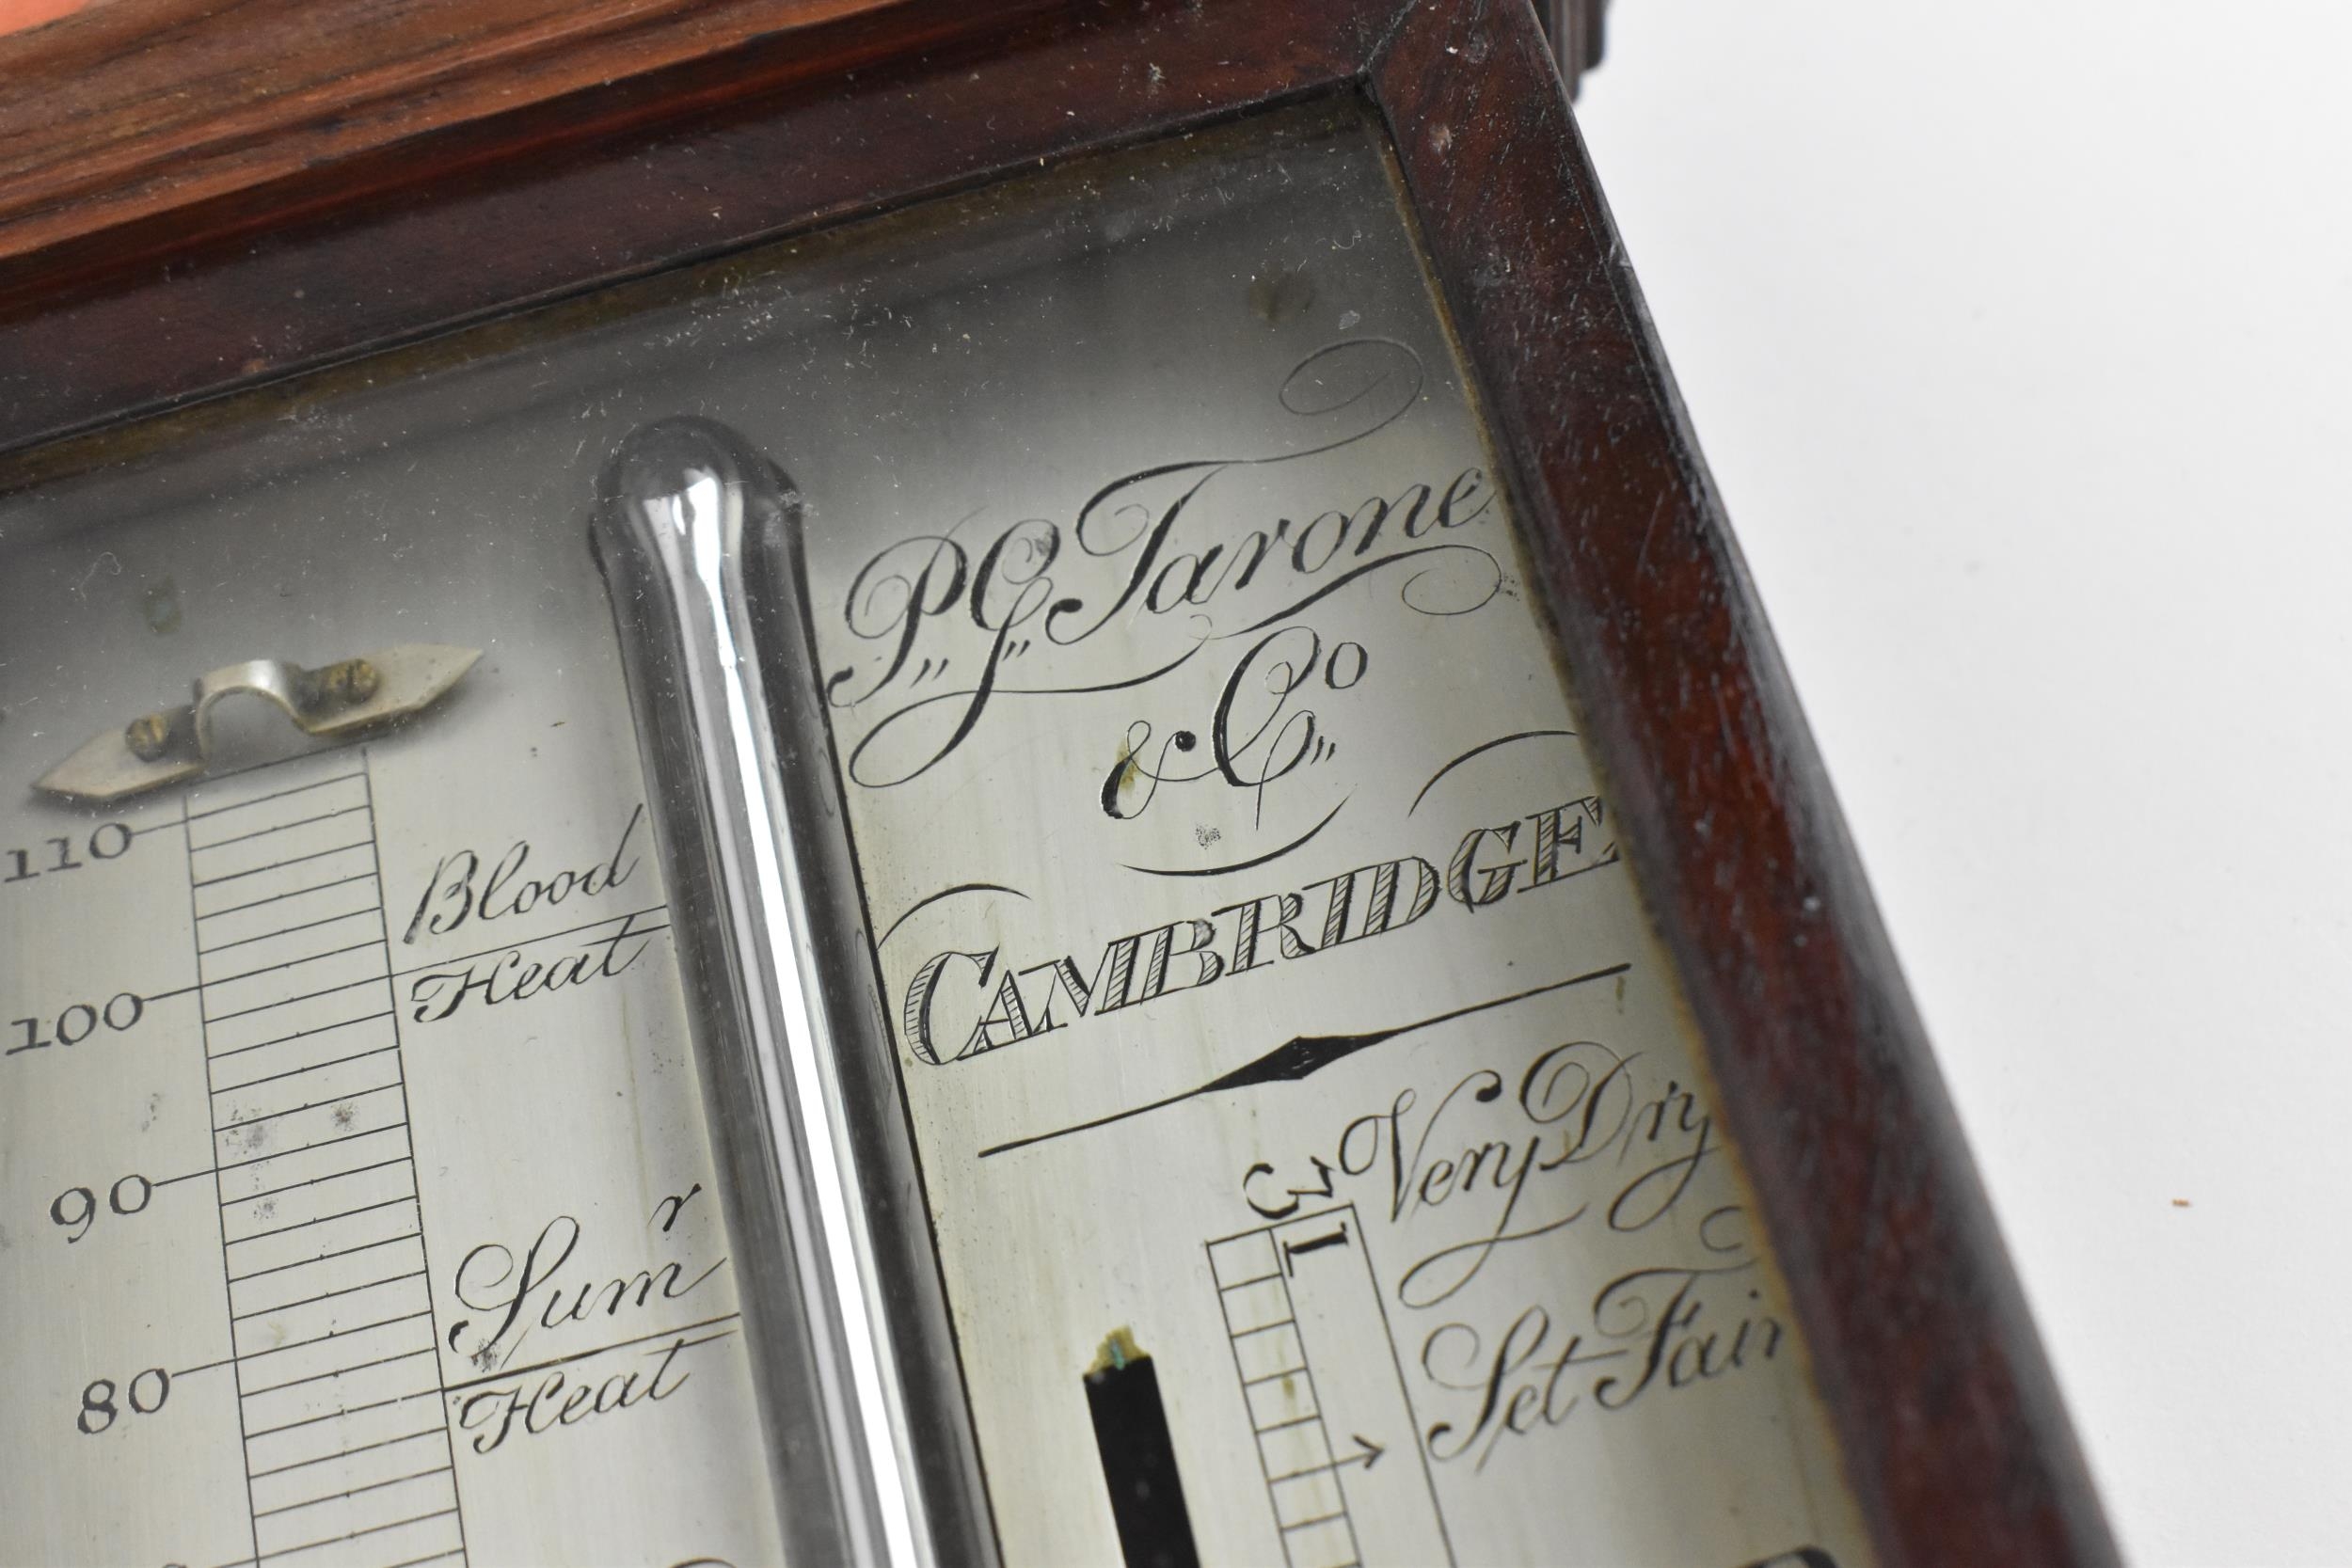 P,, G,, Tarone
& Co,,
CAMBRIDGE
110
Blood
Heat
100
90
Sumr
Heat
80
31
Very Dry
Set Fair